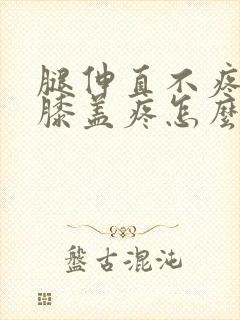 腿伸直不疼
膝盖疼怎麼
盤古混沌